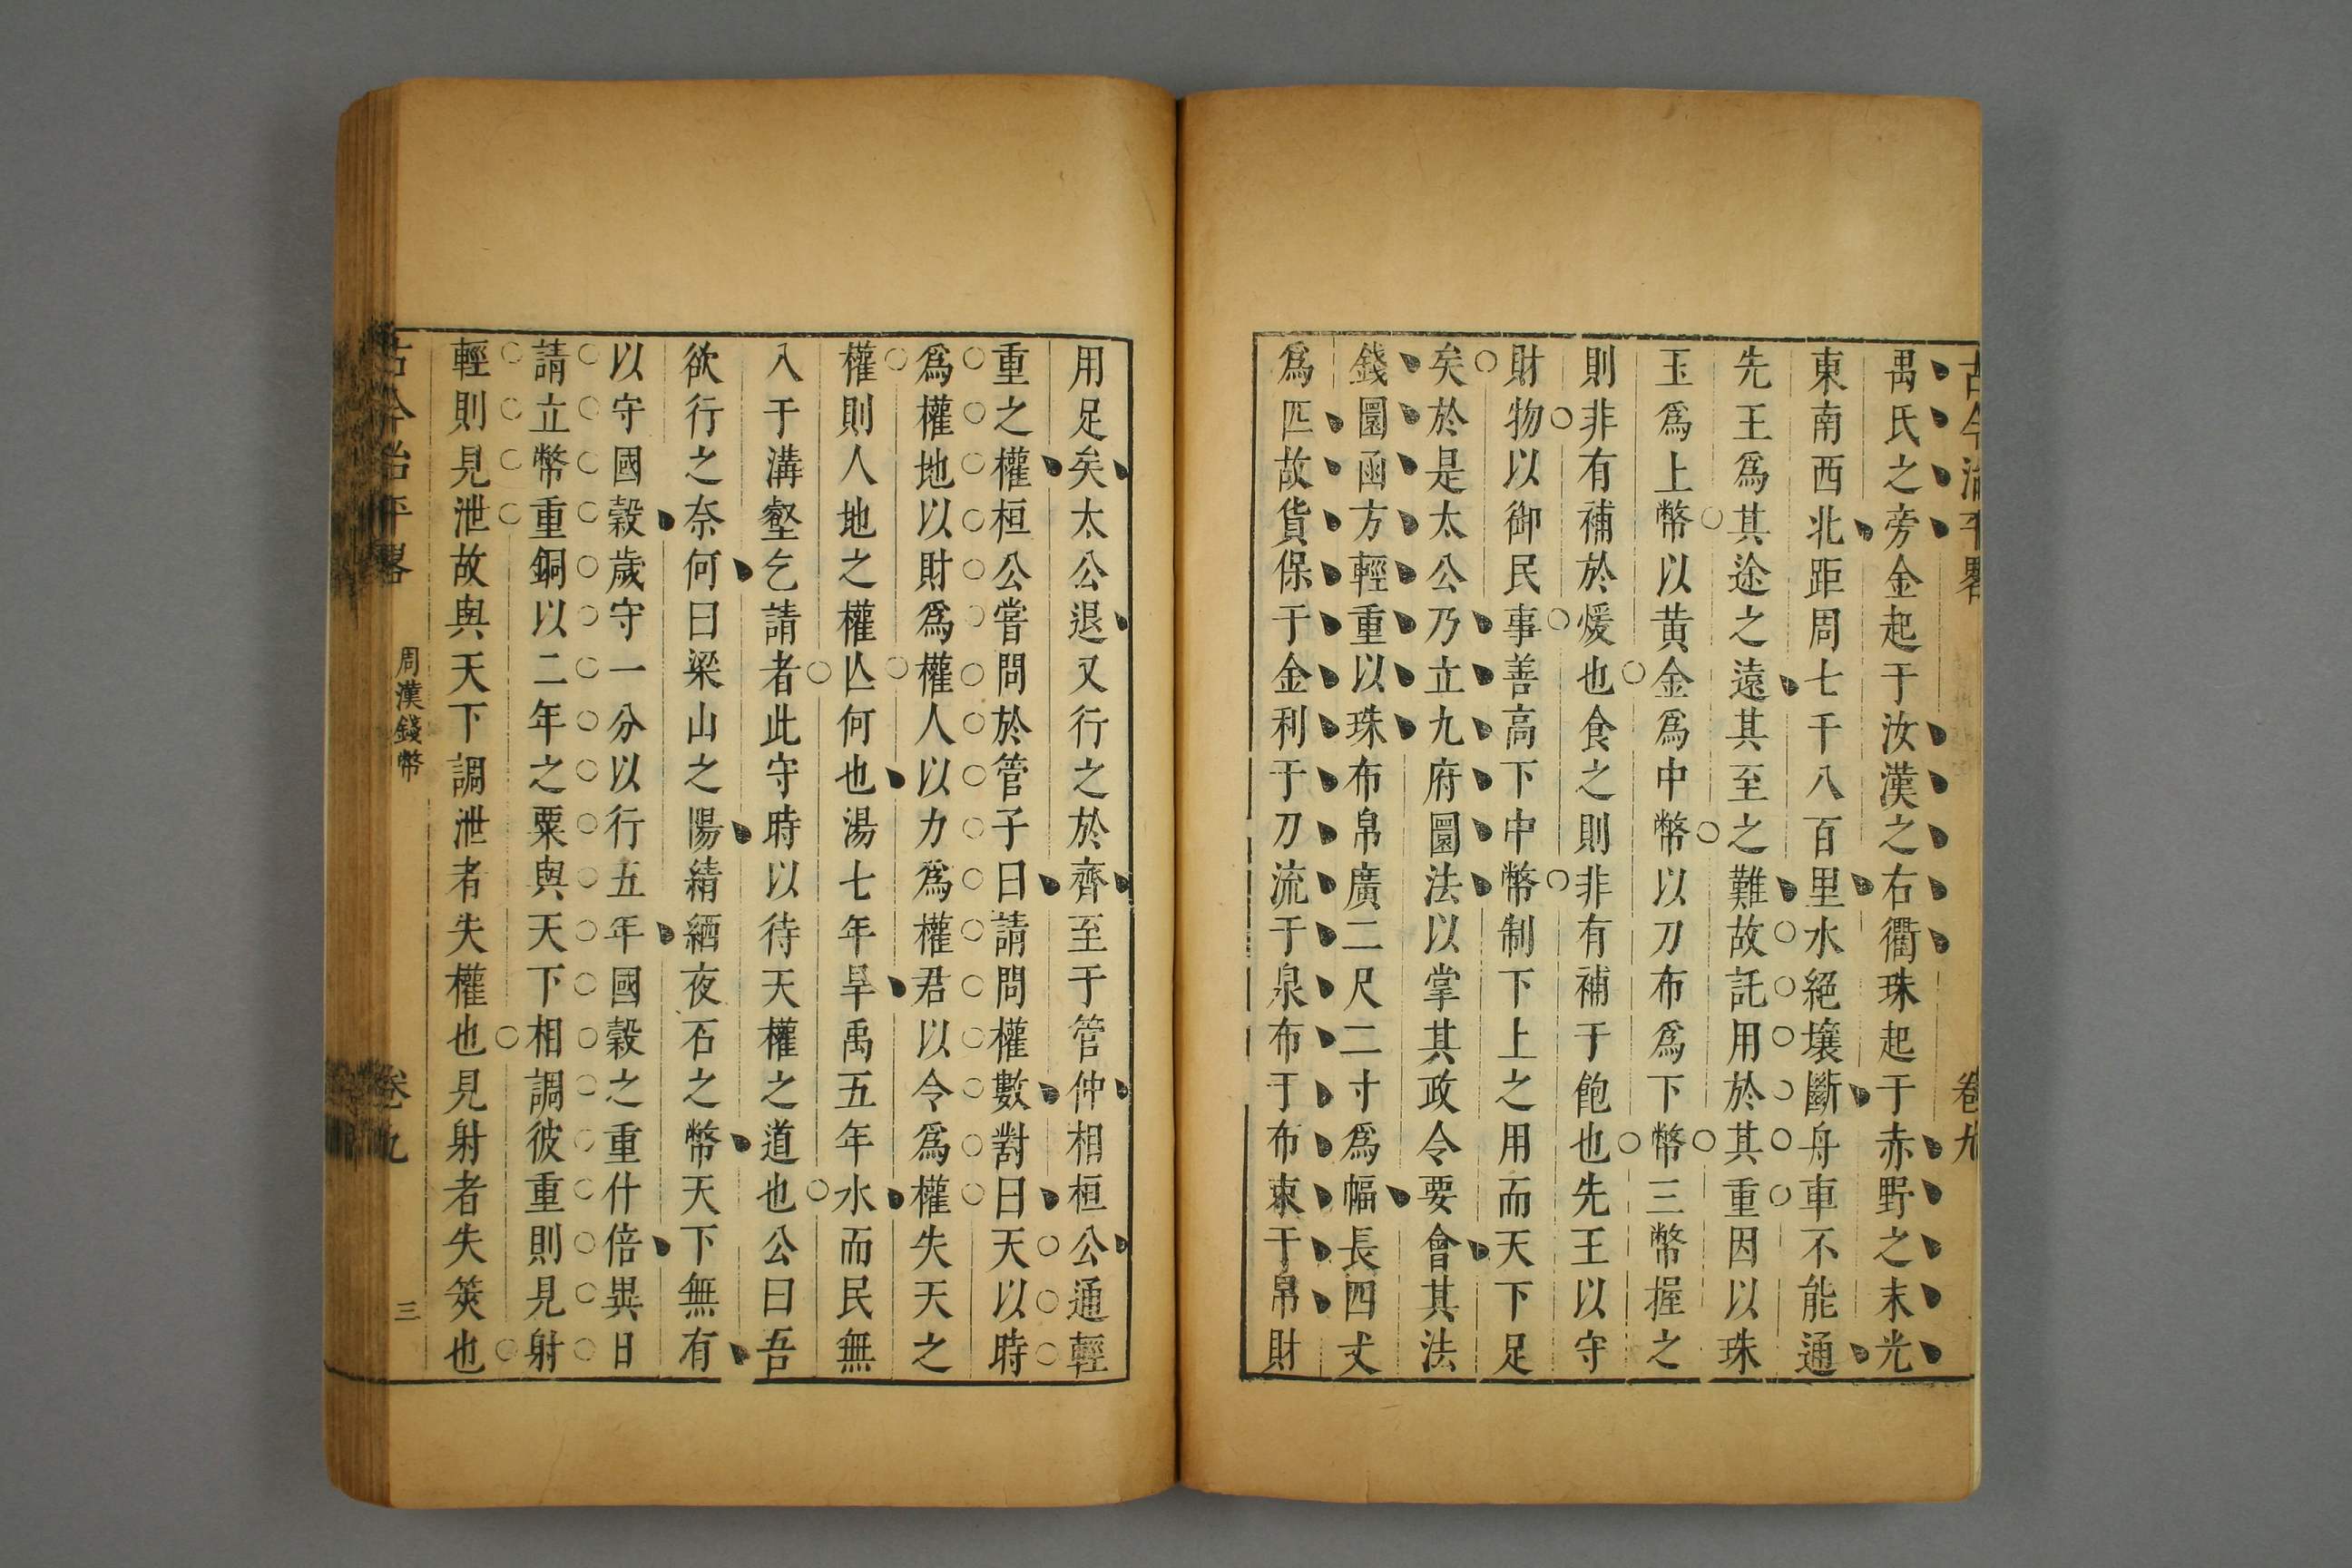 古今治平畧 卷九
禺氏之旁金起于汝漢之右衢珠起于赤野之末光
東南西北距周七千八百里水絕壤斷舟車不能通
先王爲其途之遠其至之難故託用於其重因以珠
玉爲上幣以黃金爲中幣以刀布爲下幣三幣握之
則非有補於煖也食之則非有補于飽也先王以守
財物以御民事善高下中幣制下上之用而天下足
矣於是太公乃立九府圜法以掌其政令要會其法
錢圜函方輕重以珠布帛廣二尺二寸爲幅長四丈
爲匹故貨保于金利于刀流于泉布于布束于帛財
用足矣太公退又行之於齊至于管仲相桓公通輕
重之權桓公嘗問於管子曰請問權數對曰天以時
爲權地以財爲權人以力爲權君以令爲權失天之
權則人地之權亾何也湯七年旱禹五年水而民無
入于溝壑乞請者此守時以待天權之道也公曰吾
欲行之奈何曰梁山之陽綪絤夜石之幣天下無有
以守國穀歲守一分以行五年國穀之重什倍異日
請立幣重銅以二年之粟與天下相調彼重則見射
輕則見泄故與天下調泄者失權也見射者失筴也
古今治平畧 周漢錢幣 卷九 三